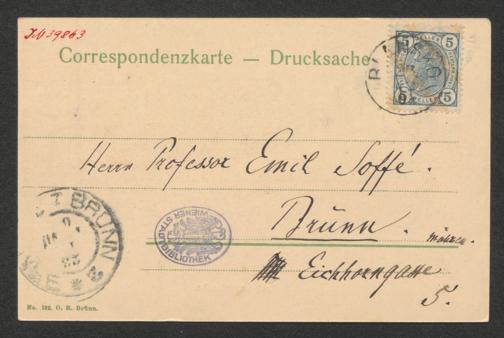 JN 39863
Correspondenzkarte — Drucksache
5 5
5 5
Herrn Professor Emil Soffé.
Brünn.
Mähren.
Eichhorngasse
5.
BRÜNN
WIENER STADTBIBLIOTHEK
No. 192. O. R. Brünn.